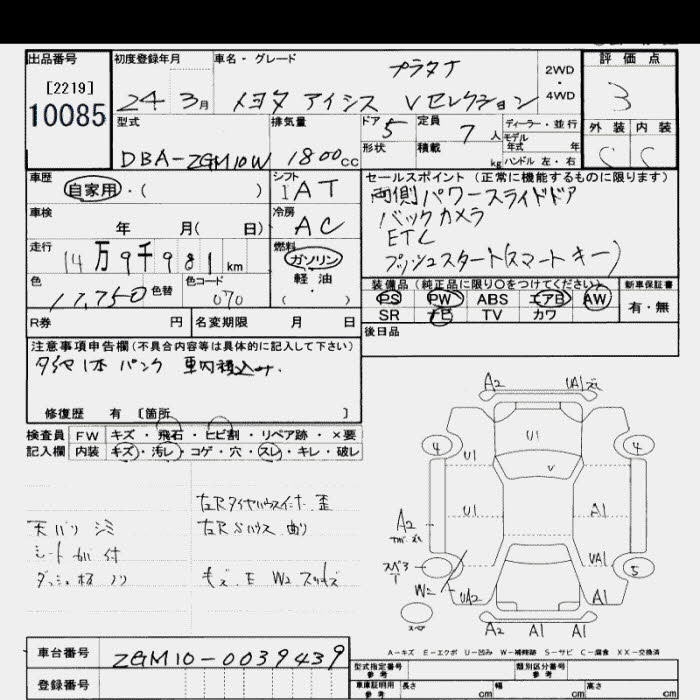 出品番号 初度登録年月 車名・グレード 評価点
[2219]
10085
24 3月 トヨタ アイシス Vセレクション
プラタナ
2WD
・
4WD
3
外装 内装
C C
型式 排気量 ドア 定員 ディーラー・並行
DBA-ZGM10W 1800cc 5 7人
モデル
年式 年
形状 積載 kg ハンドル 左・右
車歴 シフト セールスポイント(正常に機能するものに限ります)
自家用・( ) IAT
両側パワースライドドア
バックカメラ
ETC
プッシュスタート(スマートキー)
車検 冷房
年 月( 日) AC
走行 燃料
14万9千981km ガソリン
・
軽油
( )
色 色替 色コード
070
装備品(純正品に限り○をつけてください) 新車保証書
PS PW ABS エアB AW 有・無
SR ナビ TV カワ
R券 円 名変期限 月 日
後日品
注意事項申告欄(不具合内容等は具体的に記入して下さい)
タイヤ1本 パンク 車内積込み.
修復歴 有 〔箇所 〕
検査員 FW キズ・飛石・ヒビ割・リペア跡・×要
記入欄 内装 キズ・汚レ・コゲ・穴・スレ・キレ・破レ
天バリ シミ
シート
A2 UA1
4 U1 4
U1 V
U1 A1
A2
スペア VA1
W2 UA2 A1 5
スペア
A2 A1 A1
A-キズ E-エクボ U-凹み W-補修跡 S-サビ C-腐食 XX-交換済
車台番号 ZGM10-0039439
登録番号
型式指定番号 類別区分番号
参考 参考
車庫証明用 長さ 幅 高さ
参考 cm cm cm